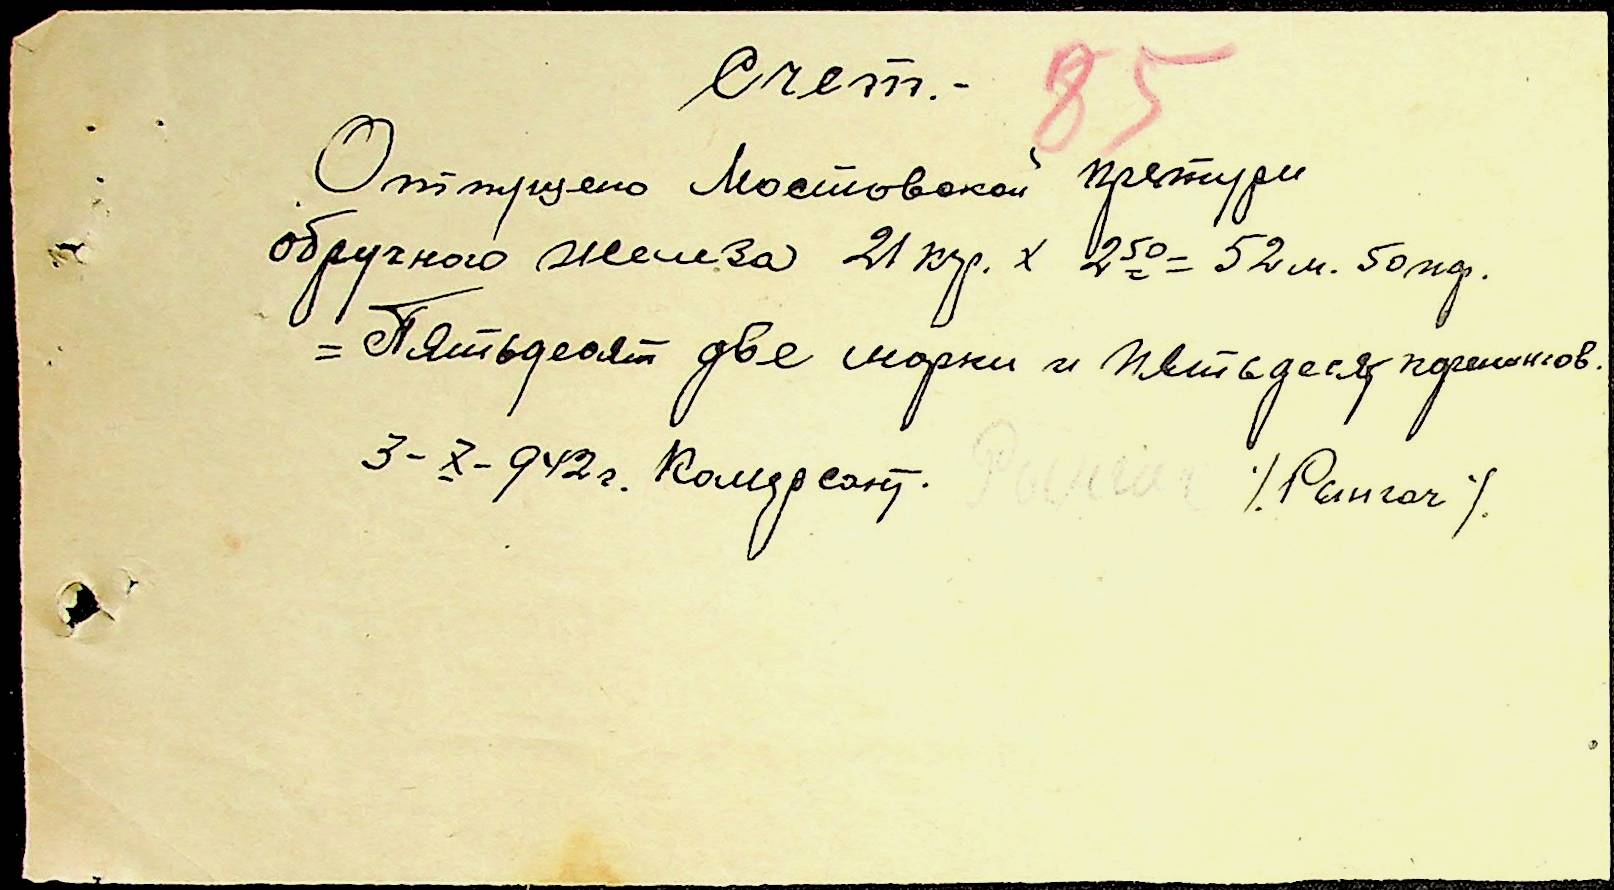 Счет.- 85
Отпущено Мостовской претури
обручного железа 21 кгр. х 2 50 = 52 м. 50 пф.
= Пятьдесят две марки и пятьдесят пфенингов.
3-X-942 г. /. Рингач /.